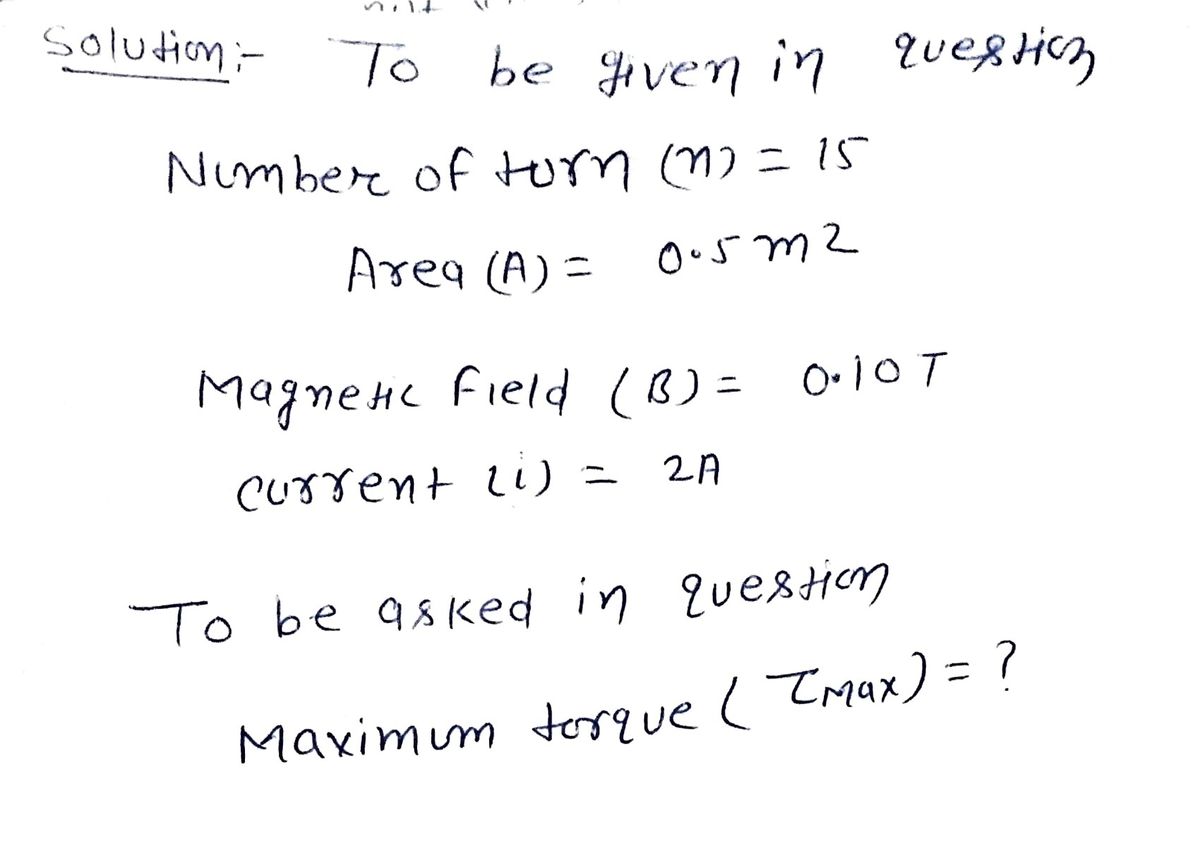 Solution:- To be given in question
Number of turn (n) = 15
Area (A) = 0.5 m2
Magnetic field (B) = 0.10 T
current (i) = 2A
To be asked in question
Maximum torque (τMax) = ?